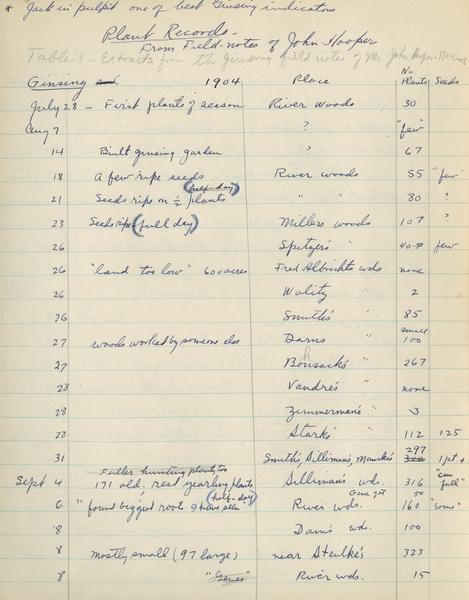 * Jack in pulpit one of best Ginseng indicators
Plant Records -
From Field-notes of John Hooper
Table 3 - Extracts from the ginseng field notes of Mr John Hooper - 1904
Ginsing 1904 Place No Plants Seeds
July 28 - First plants of season River Woods 30
Aug 7 ? "few"
14 Built ginsing garden ? 67
18 A few ripe seeds River woods 55 "few"
21 Seeds ripe on ½ plants (half-day) " " 80 ?
23 Seeds ripe (full day) Millers woods 107 ?
26 Spitzers " 40-50 few
26 "land too low" 600 acres Fred Albrichts wds. none
26 Wality " 2
26 Smith's " 85
27 woods worked by someone else Dams " small 100
27 Bohsack's " 267
28 Vandre's " none
28 Zimmerman's " 3
28 Stark's " 112 125
31 Smith's, Silliman's, Manske's 297 322 1 pt +
Fuller hunting plants, too
Sept 4 171 old, rest yearling plants Silliman's wds. 316 "can full"
6 "found biggest roots I have seen (half-day) River wds. Gene got 50 160 "some"
8 Dam's wds. 100
8 mostly small (97 large) near Steulke's 323
8 "Genes" River wds. 15